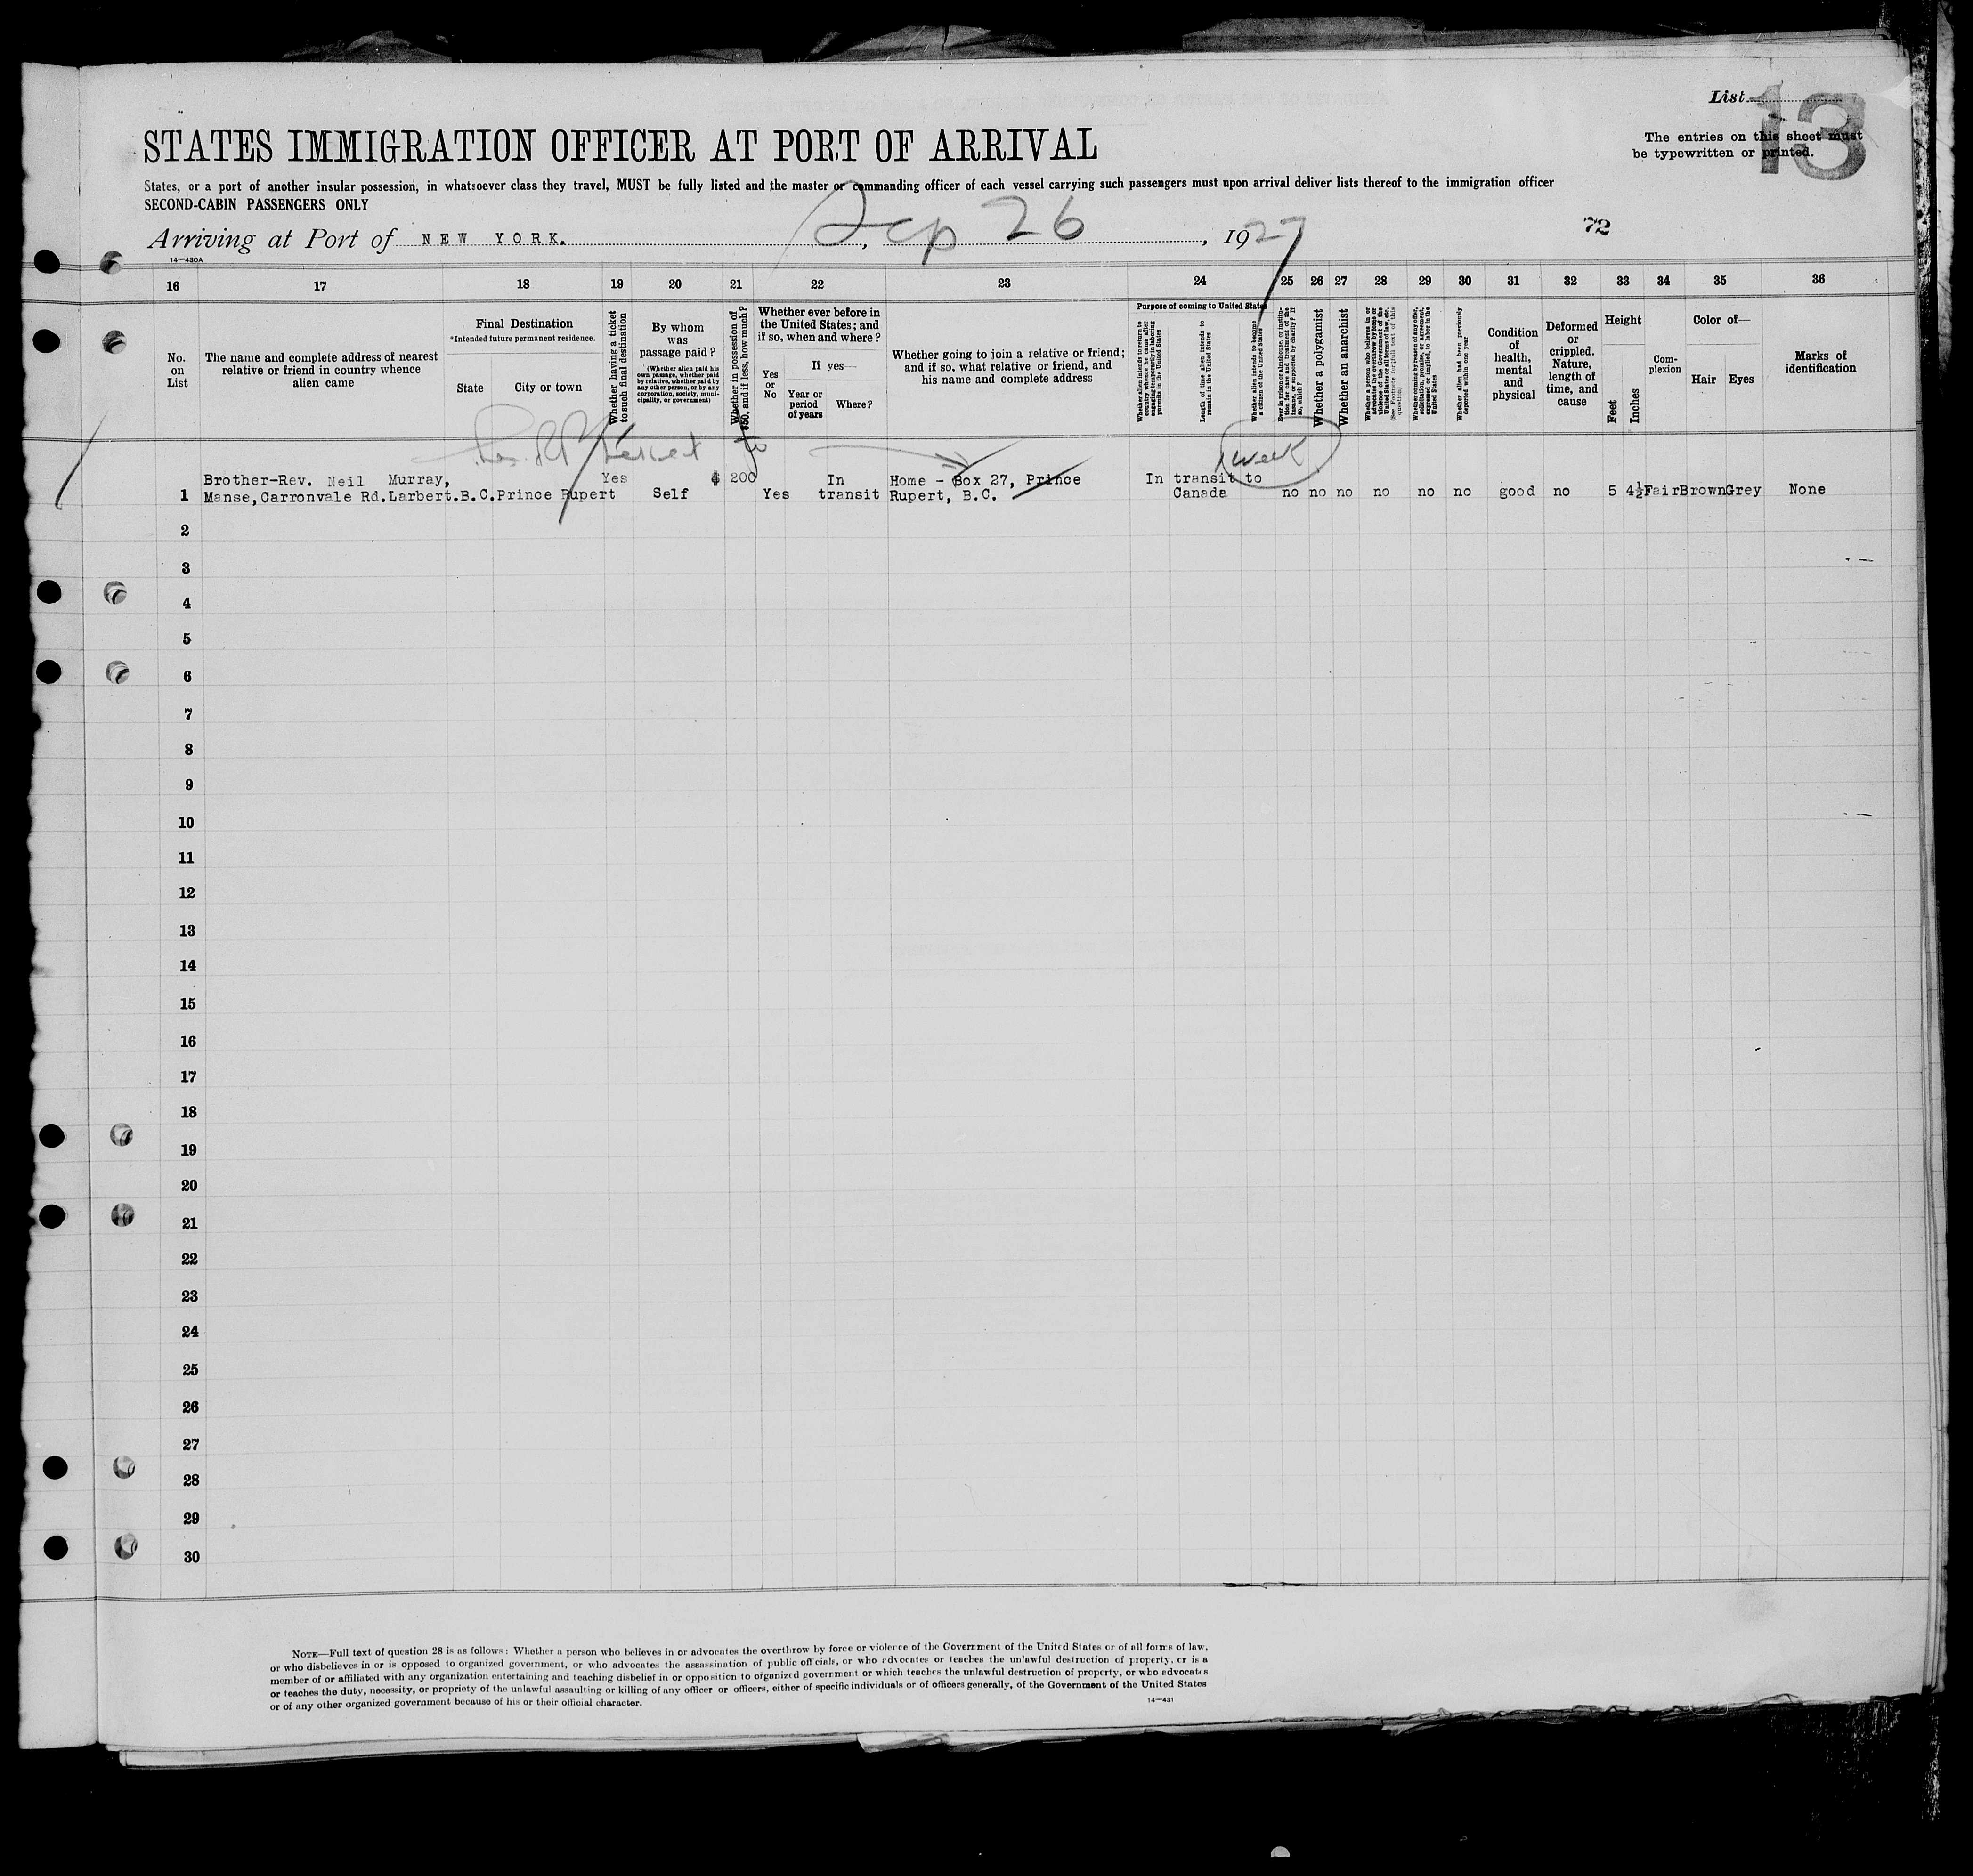 List
13
The entries on this sheet must
be typewritten or printed.
STATES IMMIGRATION OFFICER AT PORT OF ARRIVAL
States, or a port of another insular possession, in whatsoever class they travel, MUST be fully listed and the master or commanding officer of each vessel carrying such passengers must upon arrival deliver lists thereof to the immigration officer
SECOND-CABIN PASSENGERS ONLY
Arriving at Port of NEW YORK. , Sep 26 , 1927
72
14—430A
16 17 18 19 20 21 22 23 24 25 26 27 28 29 30 31 32 33 34 35 36
No. on List
The name and complete address of nearest relative or friend in country whence alien came
Final Destination
*Intended future permanent residence.
State
City or town
Whether having a ticket to such final destination
By whom was passage paid?
(Whether alien paid his own passage, whether paid by relative, whether paid by any other person, or by any corporation, society, municipality, or government)
Whether in possession of $50, and if less, how much?
Whether ever before in the United States; and if so, when and where?
Yes or No
If yes—
Year or period of years
Where?
Whether going to join a relative or friend; and if so, what relative or friend, and his name and complete address
Purpose of coming to United States
Whether alien intends to return to country whence he came after engaging temporarily in laboring pursuits in the United States
Length of time alien intends to remain in the United States
Whether alien intends to become a citizen of the United States
Ever in prison or almshouse, or institution for care and treatment of the insane, or supported by charity? If so, which?
Whether a polygamist
Whether an anarchist
Whether a person who believes in or advocates the overthrow by force or violence of the Government of the United States or all forms of law, etc. (See Footnote for full text of this question)
Whether coming by reason of any offer, solicitation, promise, or agreement, expressed or implied, to labor in the United States
Whether alien had been previously deported within one year
Condition of health, mental and physical
Deformed or crippled. Nature, length of time, and cause
Height
Feet
Inches
Complexion
Color of—
Hair
Eyes
Marks of identification
week
Brother-Rev. Neil Murray, Yes $ 200 In Home - Box 27, Prince In transit to
1 Manse,Carronvale Rd.Larbert.B.C.Prince Rupert Self Yes transit Rupert, B.C. Canada no no no no no no good no 5 4½ Fair Brown Grey None
2
3
4
5
6
7
8
9
10
11
12
13
14
15
16
17
18
19
20
21
22
23
24
25
26
27
28
29
30
NOTE—Full text of question 28 is as follows: Whether a person who believes in or advocates the overthrow by force or violence of the Government of the United States or of all forms of law,
or who disbelieves in or is opposed to organized government, or who advocates the assassination of public officials, or who advocates or teaches the unlawful destruction of property, or is a
member of or affiliated with any organization entertaining and teaching disbelief in or opposition to organized government or which teaches the unlawful destruction of property, or who advocates
or teaches the duty, necessity, or propriety of the unlawful assaulting or killing of any officer or officers, either of specific individuals or of officers generally, of the Government of the United States
or of any other organized government because of his or their official character.
14—431